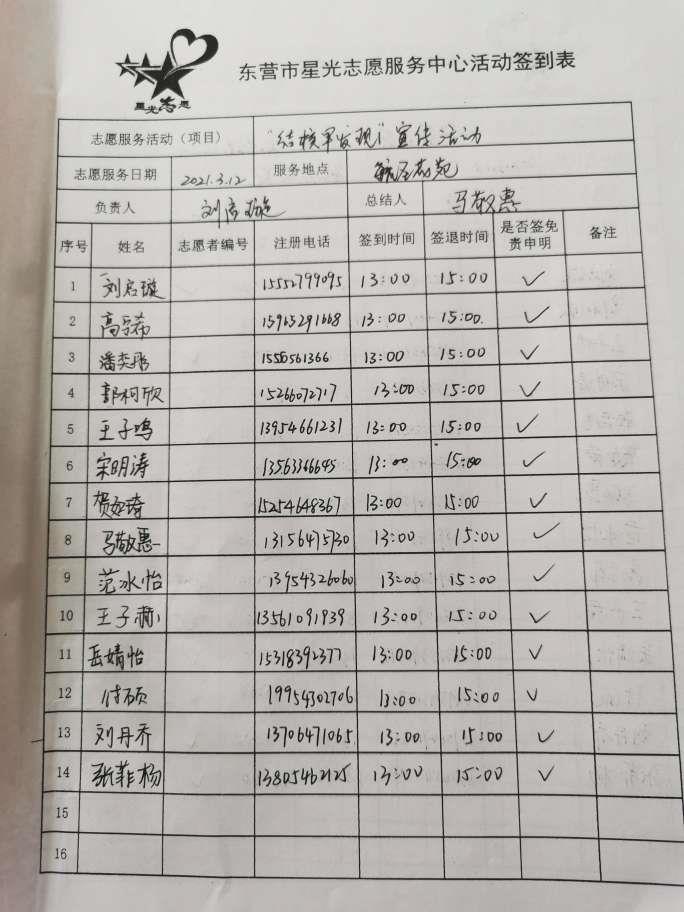 星光志愿
东营市星光志愿服务中心活动签到表
志愿服务活动（项目） "结核早发现"宣传活动
志愿服务日期 2021.3.12 服务地点
负责人 刘 总结人 马敬惠
序号 姓名 志愿者编号 注册电话 签到时间 签退时间 是否签免责申明 备注
1 刘启璇 15552799095 13:00 15:00 ✓
2 高 15965291668 13:00 15:00. ✓
3 潘奕彤 1556561366 13:00 15:00 ✓
4 郭柯欣 15266072717 13:00 15:00 ✓
5 王子鸣 13954661231 13:00 15:00 ✓
6 宋明涛 13563366645 13:00 15:00 ✓
7 贺 琦 15254648367 13:00 15:00 ✓
8 马敬惠 13156475730 13:00 15:00 ✓
9 范冰怡 13954326060 13:00 15:00 ✓
10 王子赫 13561091939 13:00 15:00 ✓
11 岳婧怡 15318392377 13:00 15:00 ✓
12 付硕 19954302706 13:00 15:00 ✓
13 刘丹乔 13706471065 13:00 15:00 ✓
14 张菲杨 13805462125 13:00 15:00 ✓
15
16